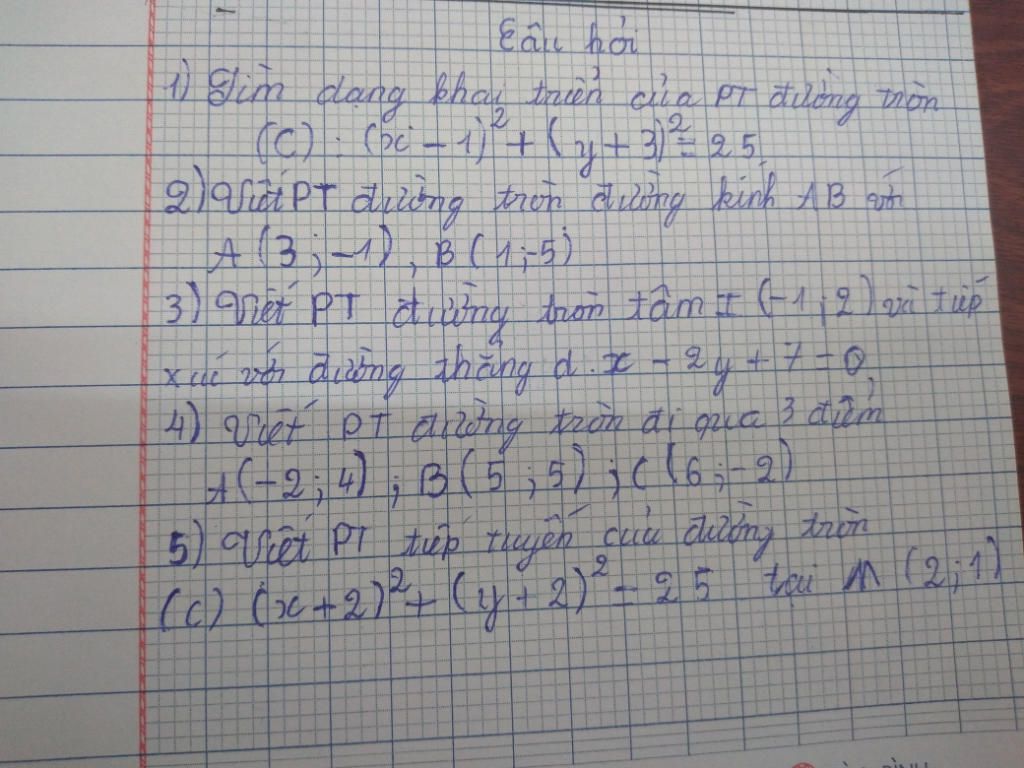 Câu hỏi
1) Tìm dạng khai triển của PT đường tròn
(C) : (x - 1)² + (y + 3)² = 25
2) Viết PT đường tròn đường kính AB với
A (3 ; -1) , B (1 ; -5)
3) Viết PT đường tròn tâm I (-1 ; 2) và tiếp
xúc với đường thẳng d : x - 2y + 7 = 0
4) Viết PT đường tròn đi qua 3 điểm
A (-2 ; 4) ; B (5 ; 5) ; C (6 ; -2)
5) Viết PT tiếp tuyến của đường tròn
(C) (x + 2)² + (y + 2)² = 25 tại M (2 ; 1)